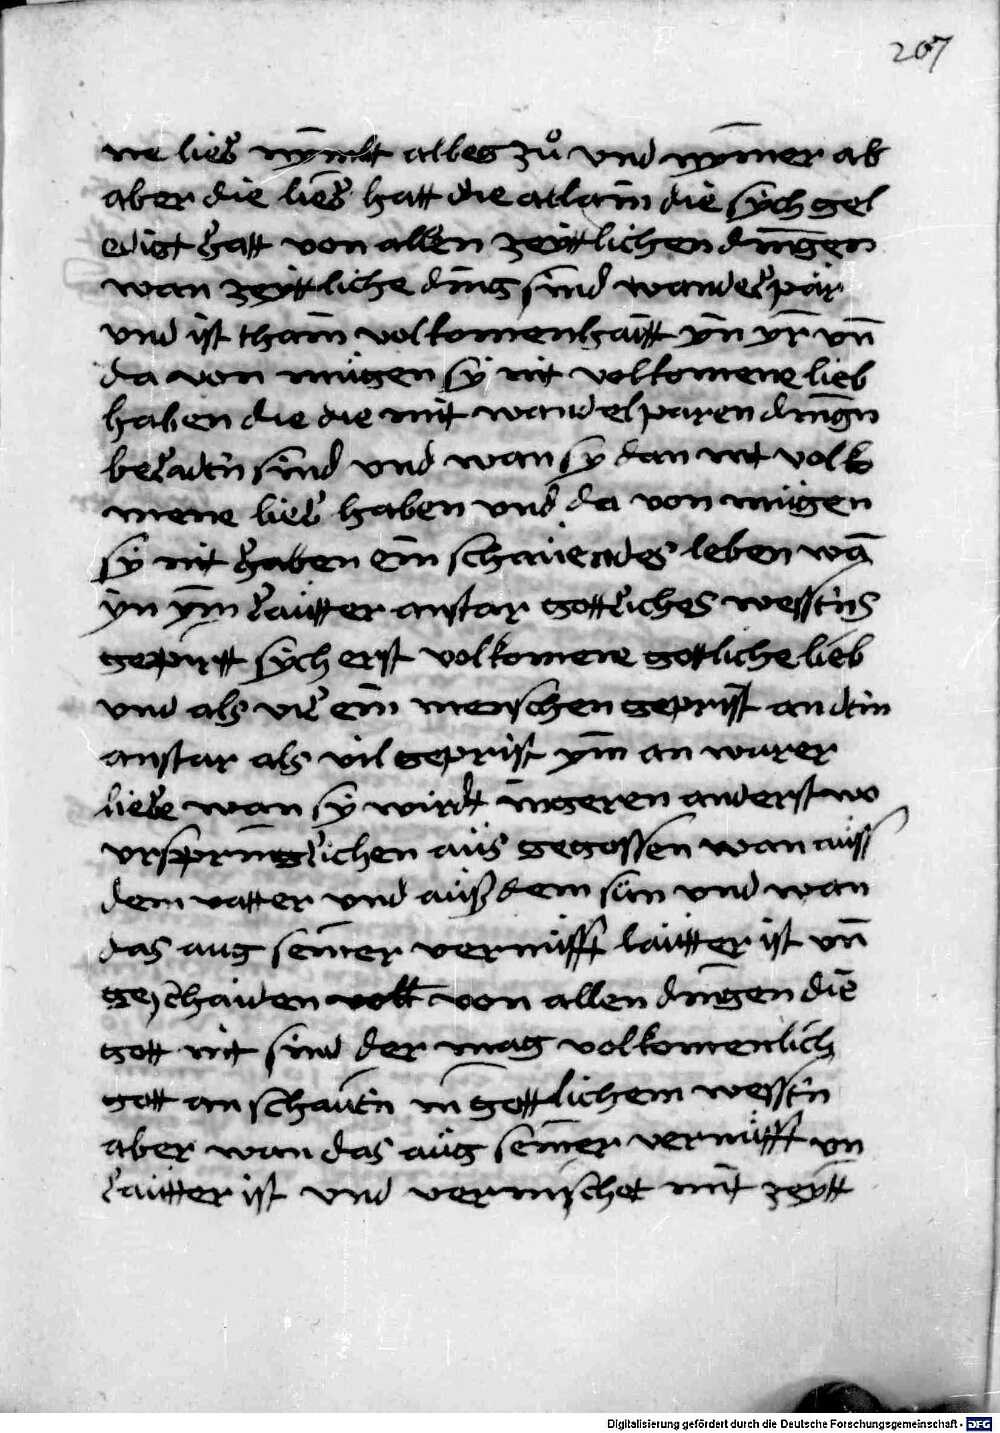 207
ne lieb nÿmbt albeg zů und nÿmer ab
aber die lieb hatt die allain die sych gel
edigt hatt von allen zeyttlichen dingen
wan zeyttliche ding sind wandelpär
und ist khain volkomenhaitt yn yr vn̄
da von mügen sÿ nit volkomene lieb
haben die die mit wandelparen dingn
beladen sind und wan sÿ dan nit volko
mene lieb haben und da von mügen
sÿ nit haben ein schauendes leben wā
ÿn ym lautter anstar gottliches wessens
gepirtt sych erst volkomene gottliche lieb
und als vil eim menschen geprist an dem
anstar als vil geprist ym an warer
liebe wan sÿ wirdt ningeren anderst wo
urspringlichen aus gegossen wan auss
dem vatter und auß dem sun und wan
das aug seiner vernufft lautter ist vn̄
geschaiden von allen dingen die
gott nit sind der mag volkomenlich
gott anschauen in gottlichem wessen
aber wan das aug seiner vernufft un
lautter ist und vermischet mit zeytt
Digitalisierung gefördert durch die Deutsche Forschungsgemeinschaft - DFG